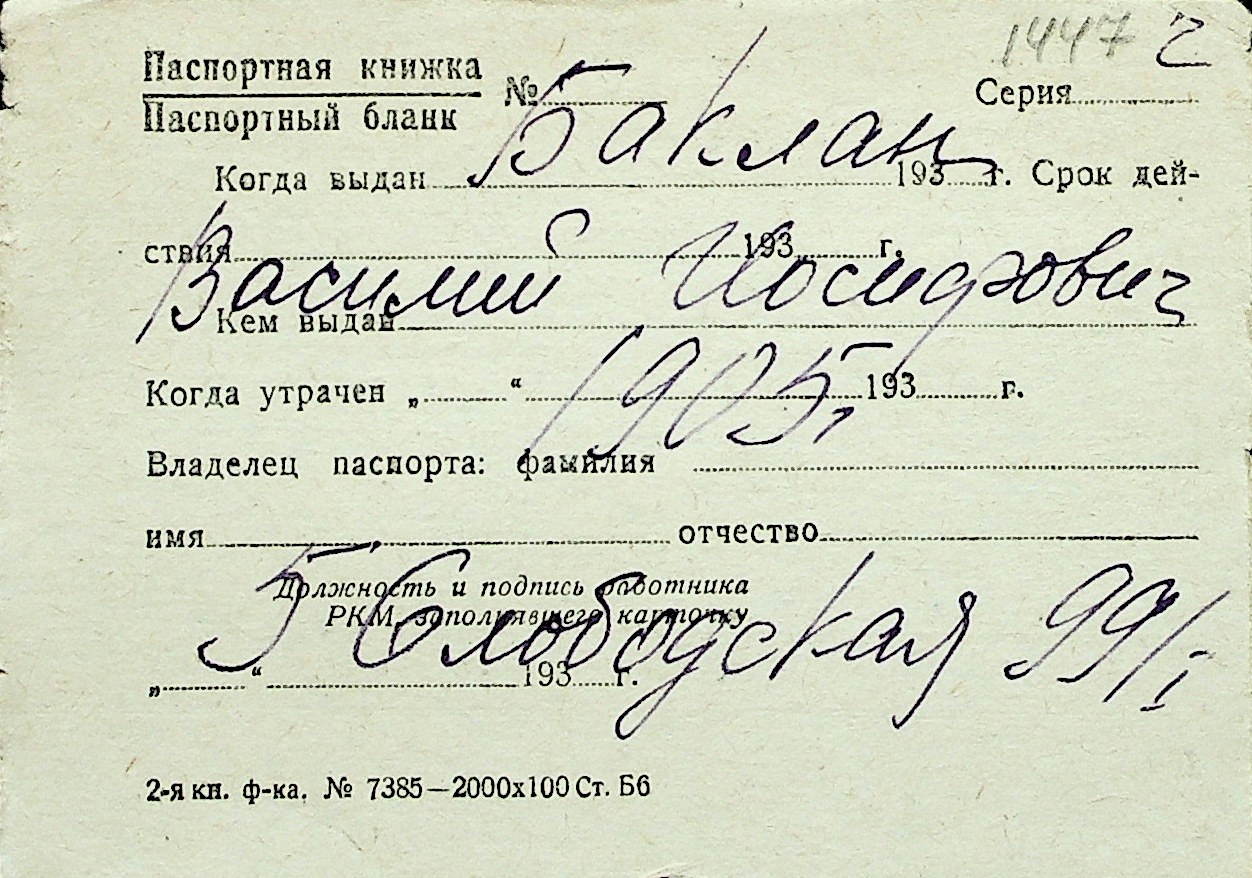 1447 г
Паспортная книжка
Паспортный бланк № Серия
Баклан
Когда выдан 193 г. Срок дей-
ствия 193 г.
Василий Иосифович
Кем выдан
1905,
Когда утрачен „ “ 193 г.
Владелец паспорта: фамилия
имя отчество
Должность и подпись работника
РКМ, заполнявшего карточку
5 Слободская 99/I
„ “ 193 г.
2-я кн. ф-ка. № 7385—2000х100 Ст. Б6